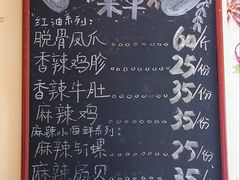 菜单
红油系列：
脱骨凤爪......60/斤
香辣鸡胗......25/份
香辣牛肚......35/份
麻辣鸡......35/份
麻辣小海鲜系列：
麻辣钉螺......25/份
麻辣扇贝......35/份